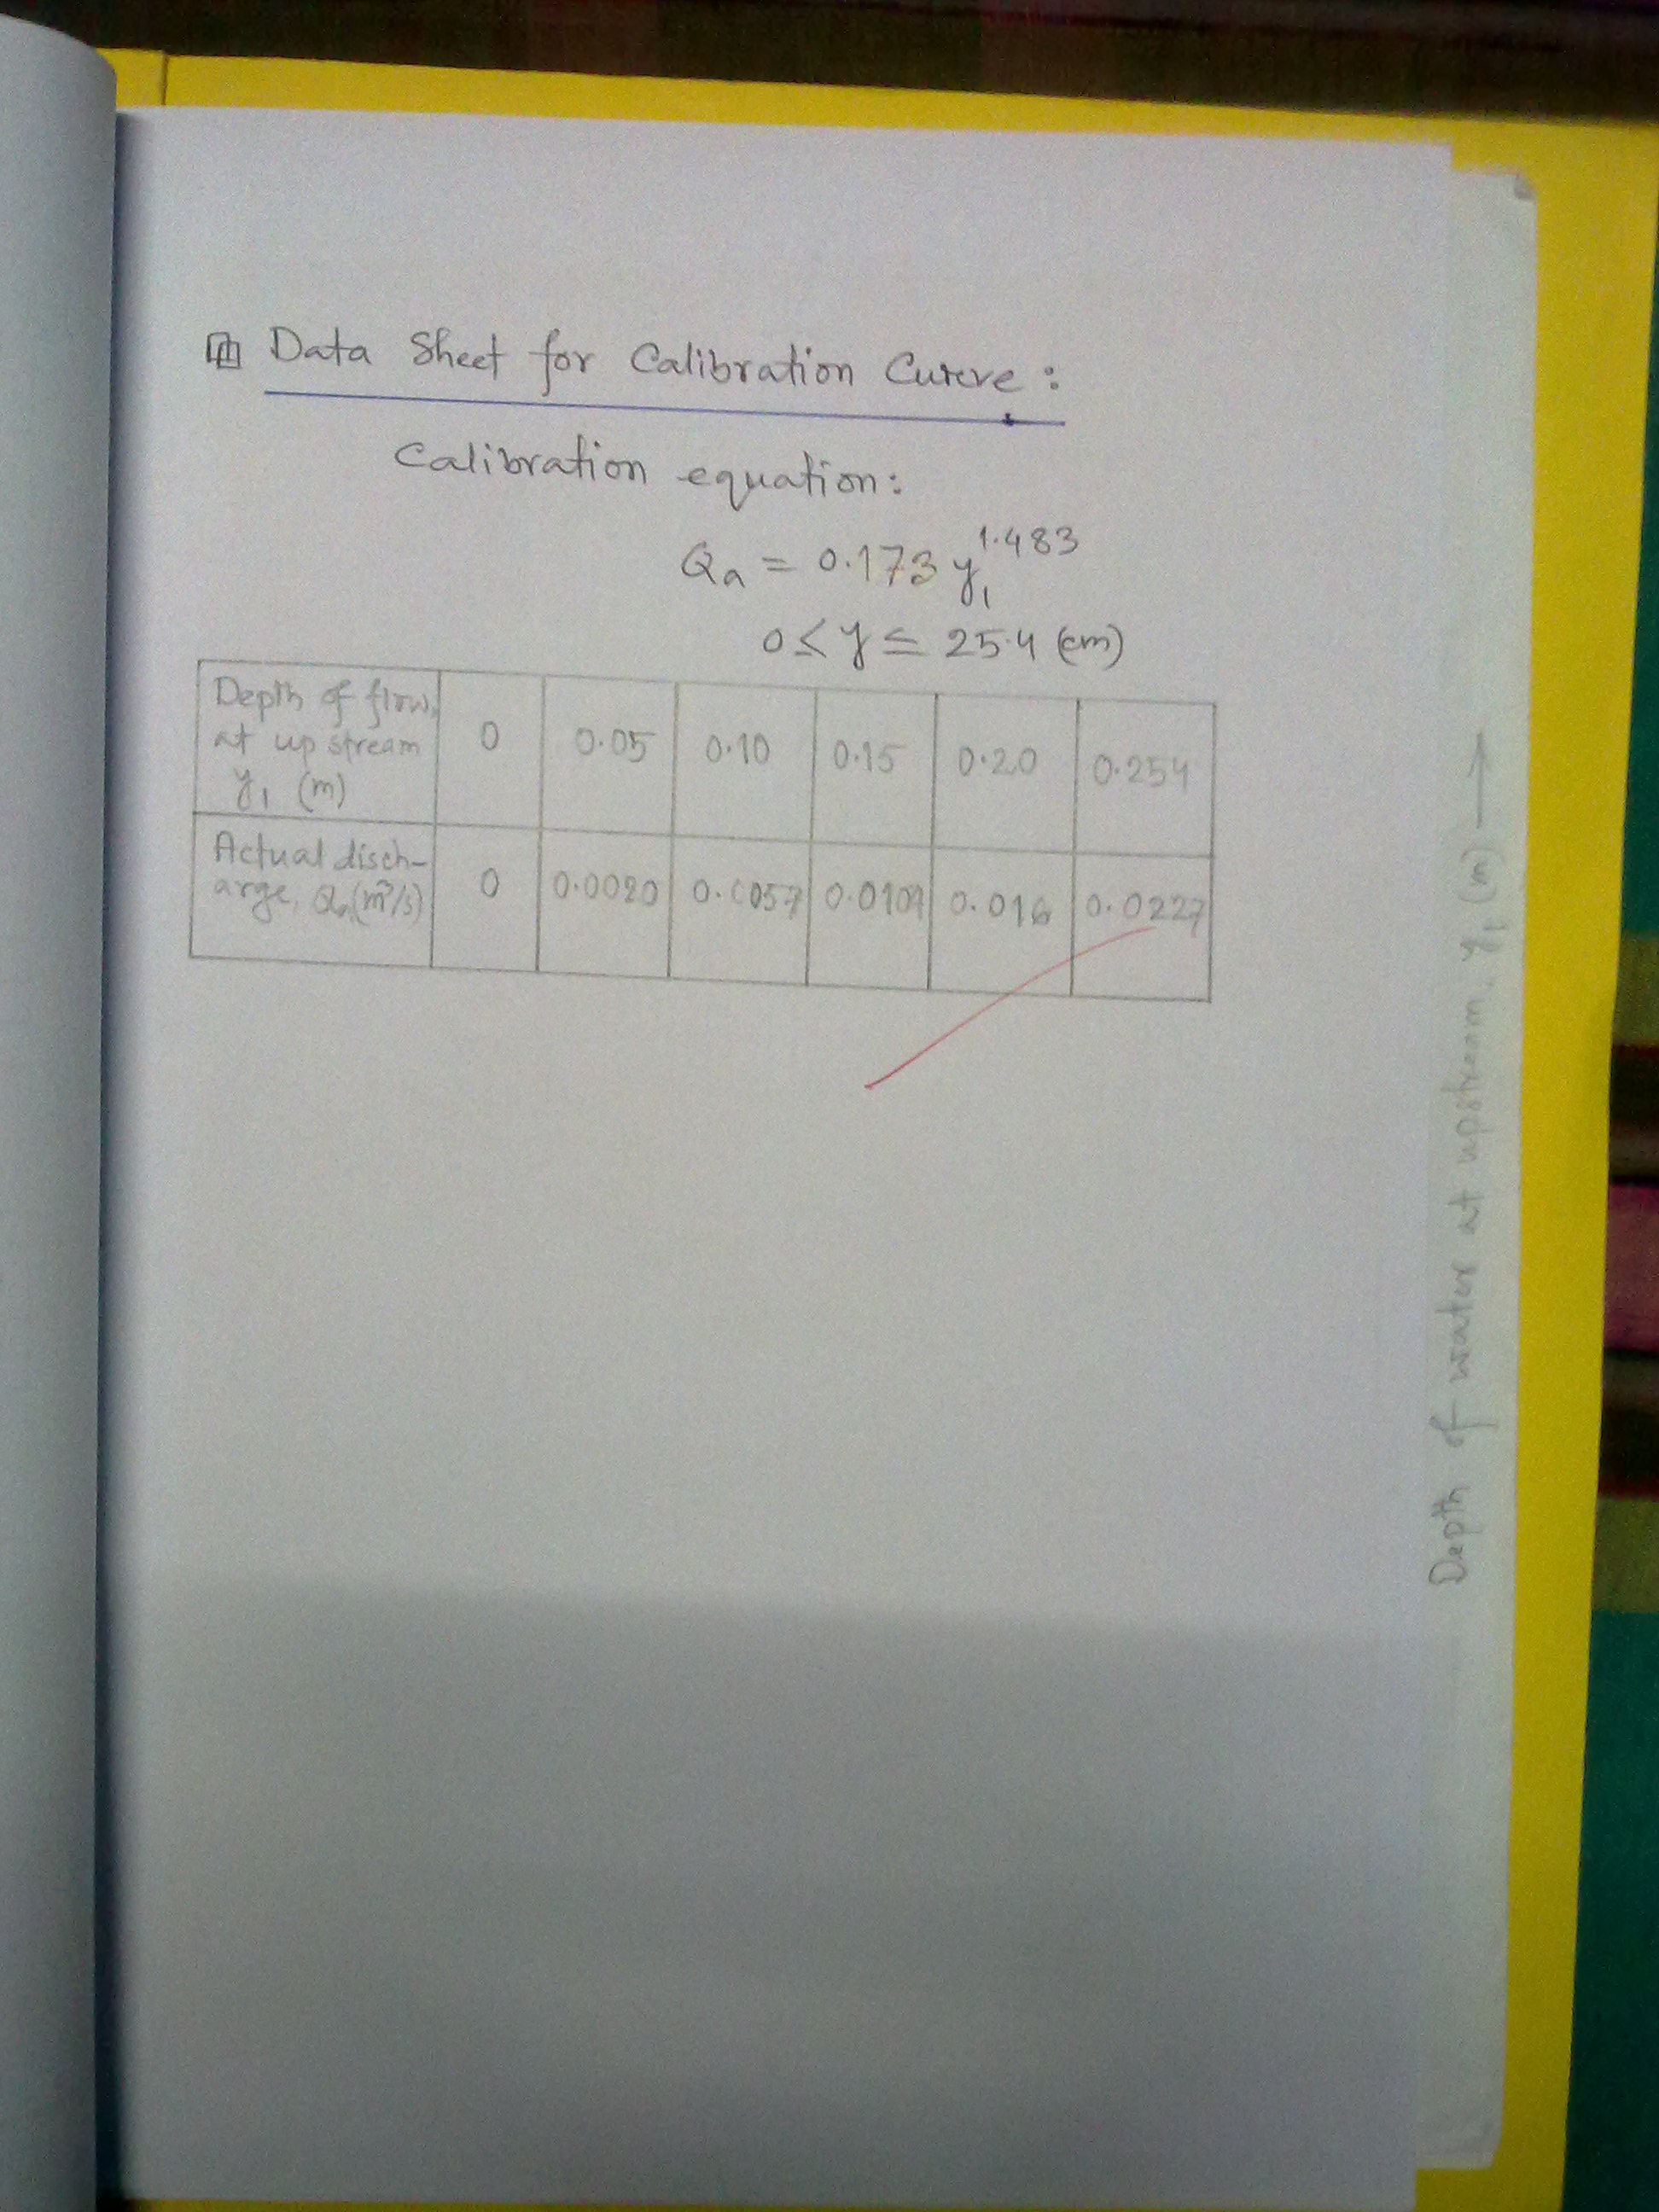 Data Sheet for Calibration Curve:
Calibration equation:
Qa = 0.173 y₁^1.483
0 ≤ y ≤ 25.4 (cm)
Depth of flow, at up stream y₁ (m) 0 0.05 0.10 0.15 0.20 0.254
Actual disch-arge, Qa (m³/s) 0 0.0020 0.0057 0.0109 0.016 0.0227
Depth of water at upstream, y₁ (m) →